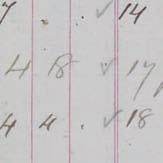 7 . ✓ 14
4 8 ✓ 17
4 4 . ✓ 18